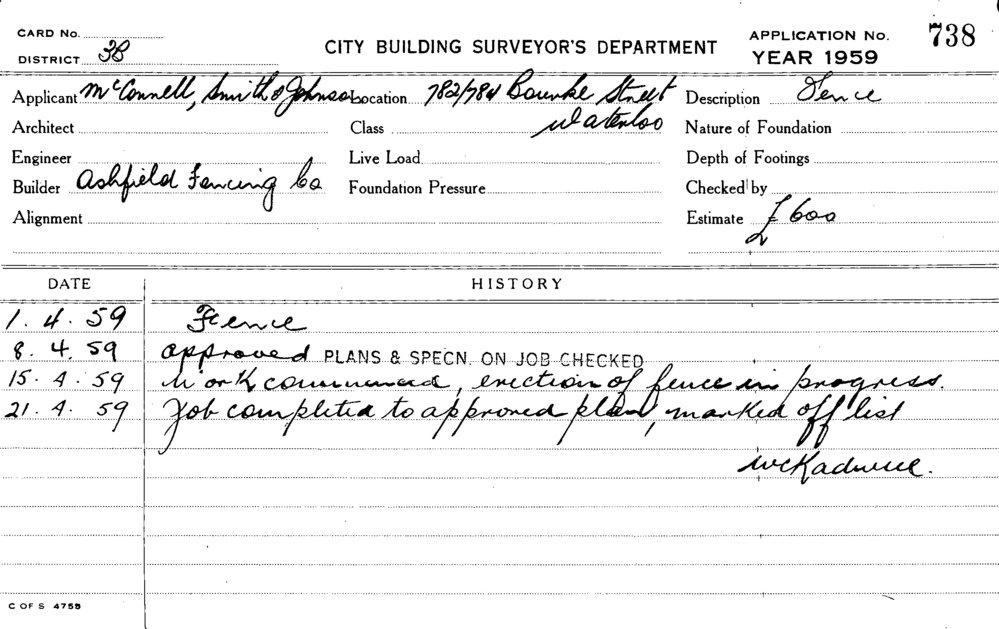 CARD No.
DISTRICT 3B
CITY BUILDING SURVEYOR'S DEPARTMENT
APPLICATION No. 738
YEAR 1959
Applicant McConnell, Smith & Johnson Location 782/784 Bourke Street Description Fence
Architect Class Waterloo Nature of Foundation
Engineer Live Load Depth of Footings
Builder Ashfield Fencing Co Foundation Pressure Checked by
Alignment Estimate £600
DATE HISTORY
1. 4. 59 Fence
8. 4. 59 approved PLANS & SPECN. ON JOB CHECKED
15. 4. 59 Work commenced, erection of fence in progress.
21. 4. 59 Job completed to approved plan, marked off list
C OF S 4758